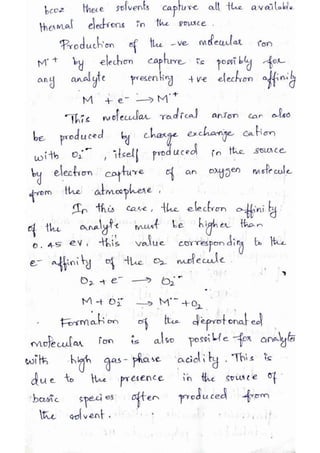 bcoz these solvents capture all the available
thermal electrons in the source.
Production of the -ve molecular ion
M•+ by electron capture is possibly for
any analyte presenting +ve electron affinity
M + e⁻ → M•+
This molecular radical anion can also
be produced by charge exchange cation
with O₂•⁻, itself produced in the source
by electron capture of an oxygen molecule
from the atmosphere.
In this case, the electron affinity
of the analyte must be higher than
0.45 eV. this value corresponding to the
e⁻ affinity of the O₂ molecule.
O₂ + e⁻ → O₂•⁻
M + O₂•⁻ → M•⁻ + O₂
Formation of the deprotonated
molecular ion is also possible for analytes
with high gas-phase acidity. This is
due to the presence in the source of
basic species often produced from
the solvent.